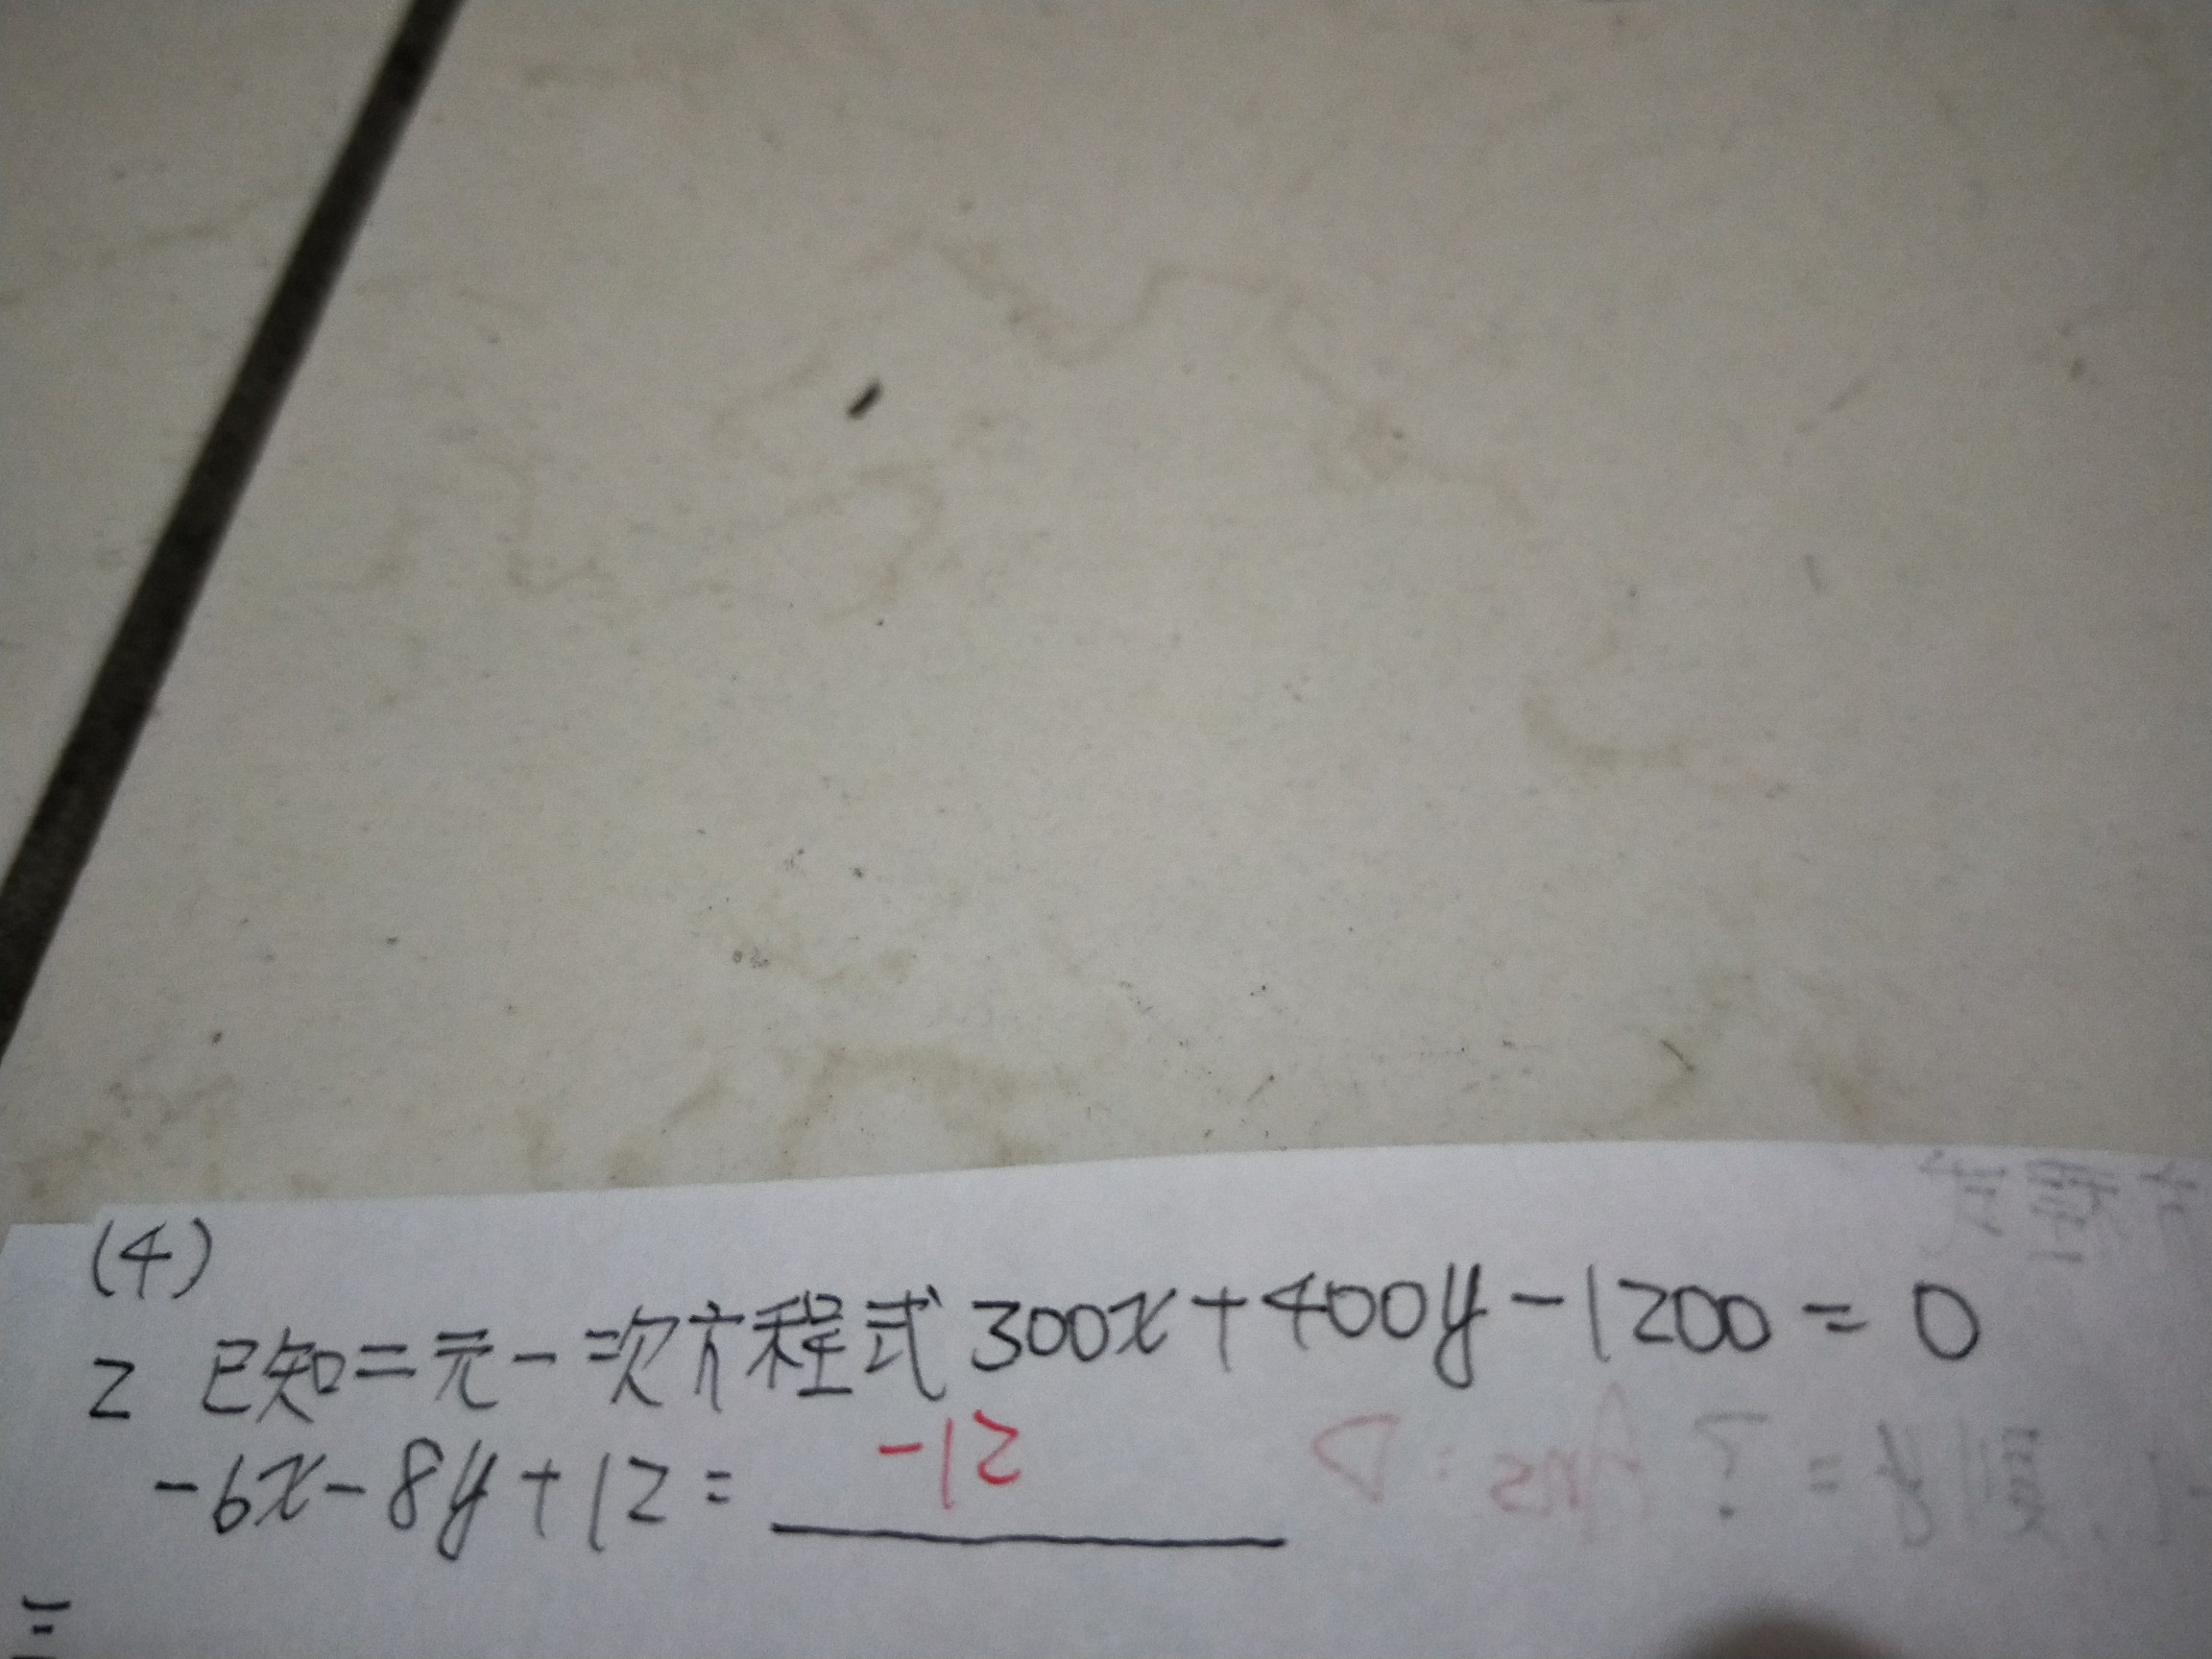 (4)
2 已知二元一次方程式300x+400y-1200=0
-12
-6x-8y+12=